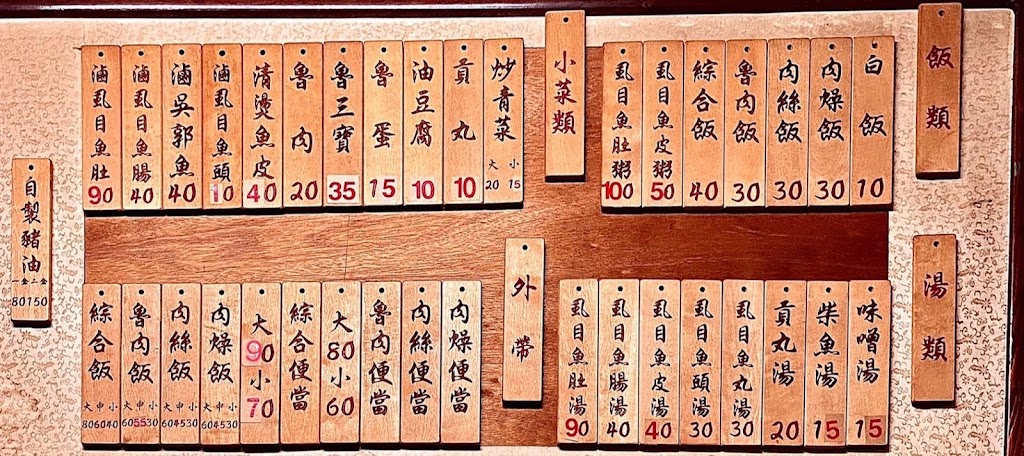 飯類
白飯 10
肉燥飯 30
肉絲飯 30
魯肉飯 30
綜合飯 40
虱目魚皮粥 50
虱目魚肚粥 100
小菜類
炒青菜 大 小 20 15
貢丸 10
油豆腐 10
魯蛋 15
魯三寶 35
魯肉 20
清燙魚皮 40
滷虱目魚頭 10
滷吳郭魚 40
滷虱目魚腸 40
滷虱目魚肚 90
湯類
味噌湯 15
柴魚湯 15
貢丸湯 20
虱目魚丸湯 30
虱目魚頭湯 30
虱目魚皮湯 40
虱目魚腸湯 40
虱目魚肚湯 90
外帶
肉燥便當
肉絲便當
魯肉便當
大80小60
綜合便當
大90小70
肉燥飯 大中小 604530
肉絲飯 大中小 604530
魯肉飯 大中小 605530
綜合飯 大中小 806040
自製豬油 80150